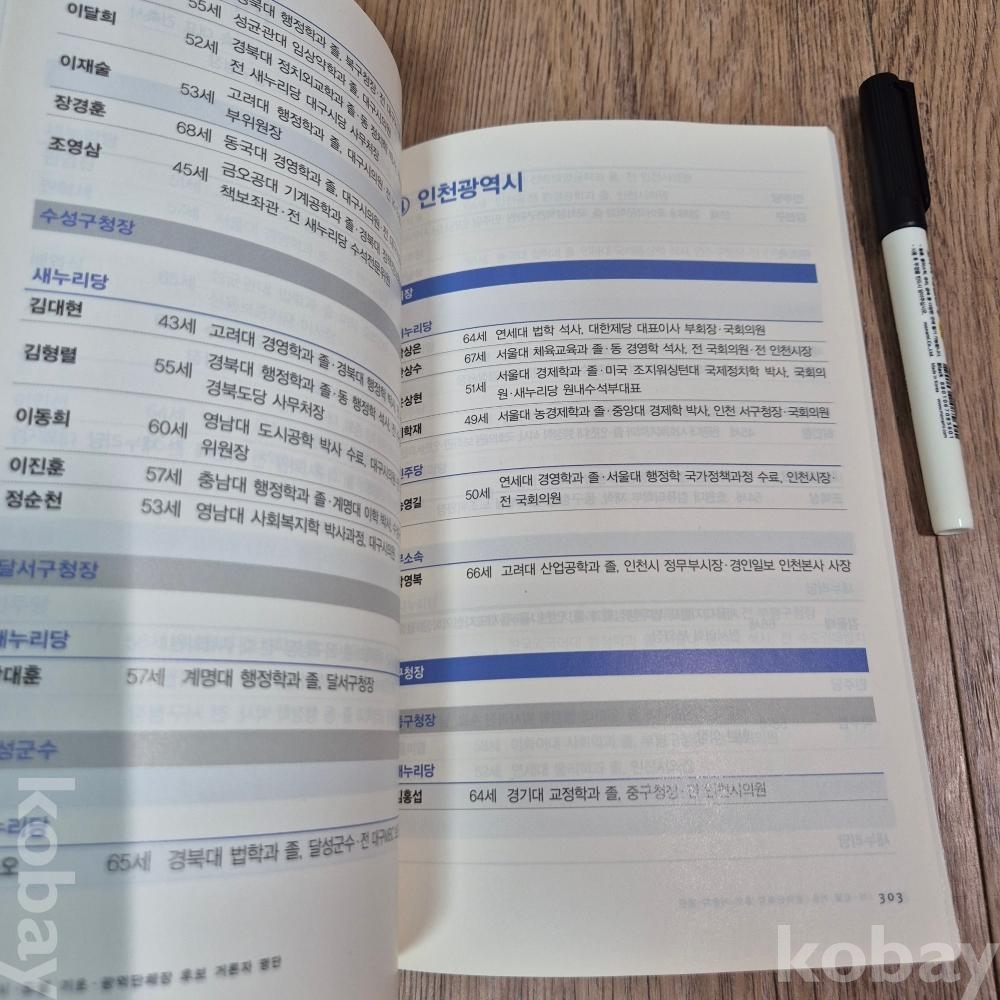 이달희
55세 성균관대 임상약학과 졸, 대구시의원
52세 경북대 정치외교학과 졸·동
이재술
전 새누리당 대구시당 사무처장
53세 고려대 행정학과 졸, 대구시의원
장경훈
부위원장
68세 동국대 경영학과 졸, 대구시의원·전
조영삼
45세 금오공대 기계공학과 졸·경북대
책보좌관·전 새누리당 수석전문위원
수성구청장
새누리당
김대현
43세 고려대 경영학과 졸·경북대 행정학 박사
김형렬
55세 경북대 행정학과 졸·동 행정학 석사, 전
경북도당 사무처장
이동희
60세 영남대 도시공학 박사 수료, 대구시의원
위원장
이진훈
57세 충남대 행정학과 졸·계명대 이학 박사,
정순천
53세 영남대 사회복지학 박사과정, 대구시의원
달서구청장
새누리당
대훈
57세 계명대 행정학과 졸, 달서구청장
성군수
누리당
오
65세 경북대 법학과 졸, 달성군수·전 대구MBC
광역단체장 후보 거론자 명단
인천광역시
시장
새누리당
상은 64세 연세대 법학 석사, 대한제당 대표이사 부회장·국회의원
상수 67세 서울대 체육교육과 졸·동 경영학 석사, 전 국회의원·전 인천시장
상현 51세 서울대 경제학과 졸·미국 조지워싱턴대 국제정치학 박사, 국회의
원·새누리당 원내수석부대표
학재 49세 서울대 농경제학과 졸·중앙대 경제학 박사, 인천 서구청장·국회의원
민주당
송영길 50세 연세대 경영학과 졸·서울대 행정학 국가정책과정 수료, 인천시장·
전 국회의원
무소속
영복 66세 고려대 산업공학과 졸, 인천시 정무부시장·경인일보 인천본사 사장
구청장
중구청장
새누리당
김홍섭 64세 경기대 교정학과 졸, 중구청장·전 인천시의원
303
kobay
kobay